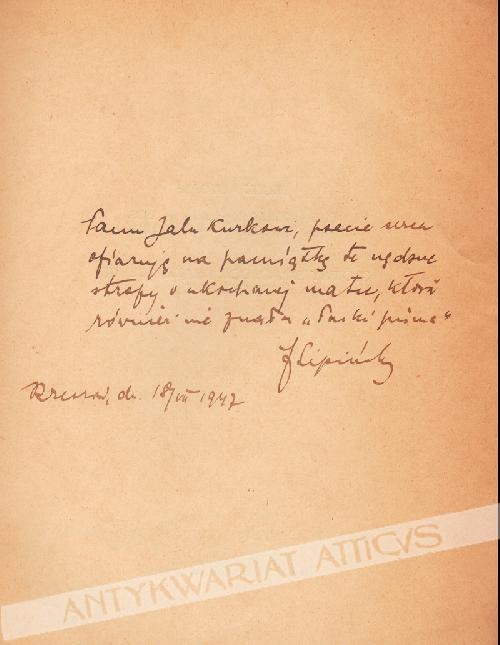 Panu Jalu Kurkowi, poecie serca
ofiaruję na pamiątkę te nędzne
strofy o ukochanej matce, która
również nie znała „sztuki pisma“
J Lipiński
Rzeszów, dn. 18/VII 1947
ANTYKWARIAT ATTICVS